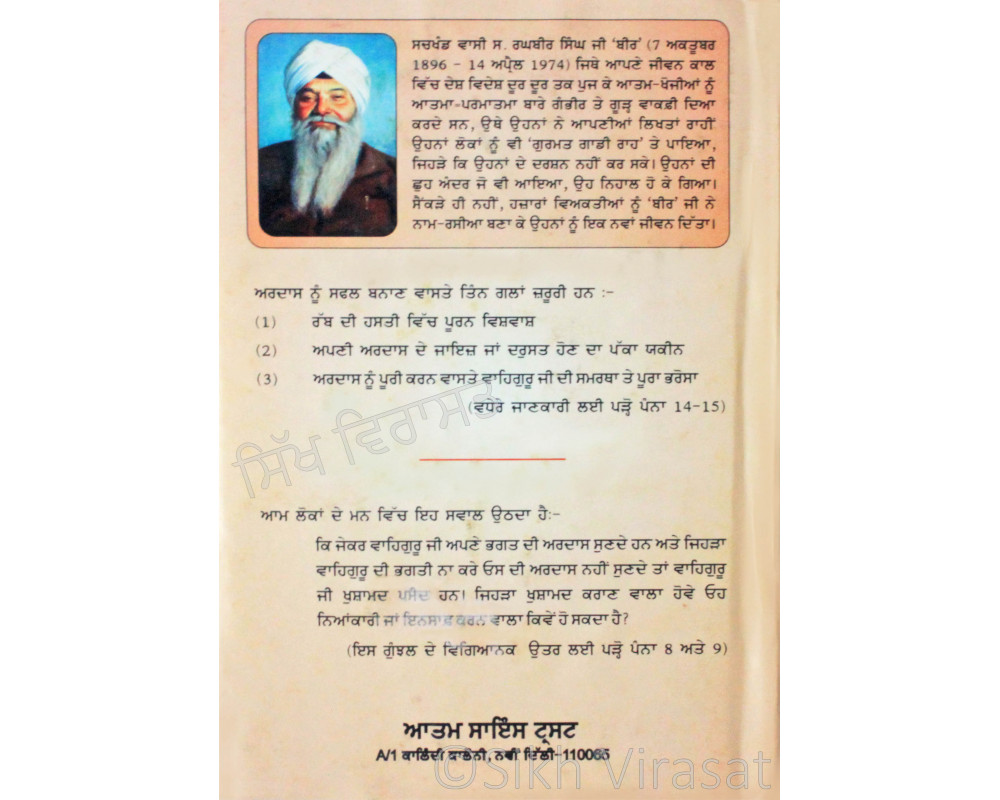 ਸਚਖੰਡ ਵਾਸੀ ਸ. ਰਘਬੀਰ ਸਿੰਘ ਜੀ ‘ਬੀਰ’ (7 ਅਕਤੂਬਰ
1896 - 14 ਅਪ੍ਰੈਲ 1974) ਜਿਥੇ ਆਪਣੇ ਜੀਵਨ ਕਾਲ
ਵਿੱਚ ਦੇਸ਼ ਵਿਦੇਸ਼ ਦੂਰ ਦੂਰ ਤਕ ਪੁਜ ਕੇ ਆਤਮ-ਖੋਜੀਆਂ ਨੂੰ
ਆਤਮਾ-ਪਰਮਾਤਮਾ ਬਾਰੇ ਗੰਭੀਰ ਤੇ ਗੂੜ੍ਹ ਵਾਕਫ਼ੀ ਦਿਆ
ਕਰਦੇ ਸਨ, ਉਥੇ ਉਹਨਾਂ ਨੇ ਆਪਣੀਆਂ ਲਿਖਤਾਂ ਰਾਹੀਂ
ਉਹਨਾਂ ਲੋਕਾਂ ਨੂੰ ਵੀ ‘ਗੁਰਮਤ ਗਾਡੀ ਰਾਹ’ ਤੇ ਪਾਇਆ,
ਜਿਹੜੇ ਕਿ ਉਹਨਾਂ ਦੇ ਦਰਸ਼ਨ ਨਹੀਂ ਕਰ ਸਕੇ। ਉਹਨਾਂ ਦੀ
ਛੂਹ ਅੰਦਰ ਜੋ ਵੀ ਆਇਆ, ਉਹ ਨਿਹਾਲ ਹੋ ਕੇ ਗਿਆ।
ਸੈਂਕੜੇ ਹੀ ਨਹੀਂ, ਹਜ਼ਾਰਾਂ ਵਿਅਕਤੀਆਂ ਨੂੰ ‘ਬੀਰ’ ਜੀ ਨੇ
ਨਾਮ-ਰਸੀਆ ਬਣਾ ਕੇ ਉਹਨਾਂ ਨੂੰ ਇਕ ਨਵਾਂ ਜੀਵਨ ਦਿੱਤਾ।
ਅਰਦਾਸ ਨੂੰ ਸਫਲ ਬਨਾਣ ਵਾਸਤੇ ਤਿੰਨ ਗਲਾਂ ਜ਼ਰੂਰੀ ਹਨ :-
(1) ਰੱਬ ਦੀ ਹਸਤੀ ਵਿੱਚ ਪੂਰਨ ਵਿਸ਼ਵਾਸ਼
(2) ਅਪਣੀ ਅਰਦਾਸ ਦੇ ਜਾਇਜ਼ ਜਾਂ ਦਰੁਸਤ ਹੋਣ ਦਾ ਪੱਕਾ ਯਕੀਨ
(3) ਅਰਦਾਸ ਨੂੰ ਪੂਰੀ ਕਰਨ ਵਾਸਤੇ ਵਾਹਿਗੁਰੂ ਜੀ ਦੀ ਸਮਰਥਾ ਤੇ ਪੂਰਾ ਭਰੋਸਾ
(ਵਧੇਰੇ ਜਾਣਕਾਰੀ ਲਈ ਪੜ੍ਹੋ ਪੰਨਾ 14-15)
ਸਿੱਖ ਵਿਰਾਸਤ
ਆਮ ਲੋਕਾਂ ਦੇ ਮਨ ਵਿੱਚ ਇਹ ਸਵਾਲ ਉਠਦਾ ਹੈ:-
ਕਿ ਜੇਕਰ ਵਾਹਿਗੁਰੂ ਜੀ ਅਪਣੇ ਭਗਤ ਦੀ ਅਰਦਾਸ ਸੁਣਦੇ ਹਨ ਅਤੇ ਜਿਹੜਾ
ਵਾਹਿਗੁਰੂ ਦੀ ਭਗਤੀ ਨਾ ਕਰੇ ਓਸ ਦੀ ਅਰਦਾਸ ਨਹੀਂ ਸੁਣਦੇ ਤਾਂ ਵਾਹਿਗੁਰੂ
ਜੀ ਖੁਸ਼ਾਮਦ ਪਸੰਦ ਹਨ। ਜਿਹੜਾ ਖੁਸ਼ਾਮਦ ਕਰਾਣ ਵਾਲਾ ਹੋਵੇ ਓਹ
ਨਿਆਂਕਾਰੀ ਜਾਂ ਇਨਸਾਫ਼ ਕਰਨ ਵਾਲਾ ਕਿਵੇਂ ਹੋ ਸਕਦਾ ਹੈ?
(ਇਸ ਗੁੰਝਲ ਦੇ ਵਿਗਿਆਨਕ ਉਤਰ ਲਈ ਪੜ੍ਹੋ ਪੰਨਾ 8 ਅਤੇ 9)
ਆਤਮ ਸਾਇੰਸ ਟ੍ਰਸਟ
A/1 ਕਾਲਿੰਦੀ ਕਾਲੋਨੀ, ਨਵੀਂ ਦਿੱਲੀ-110065
©Sikh Virasat